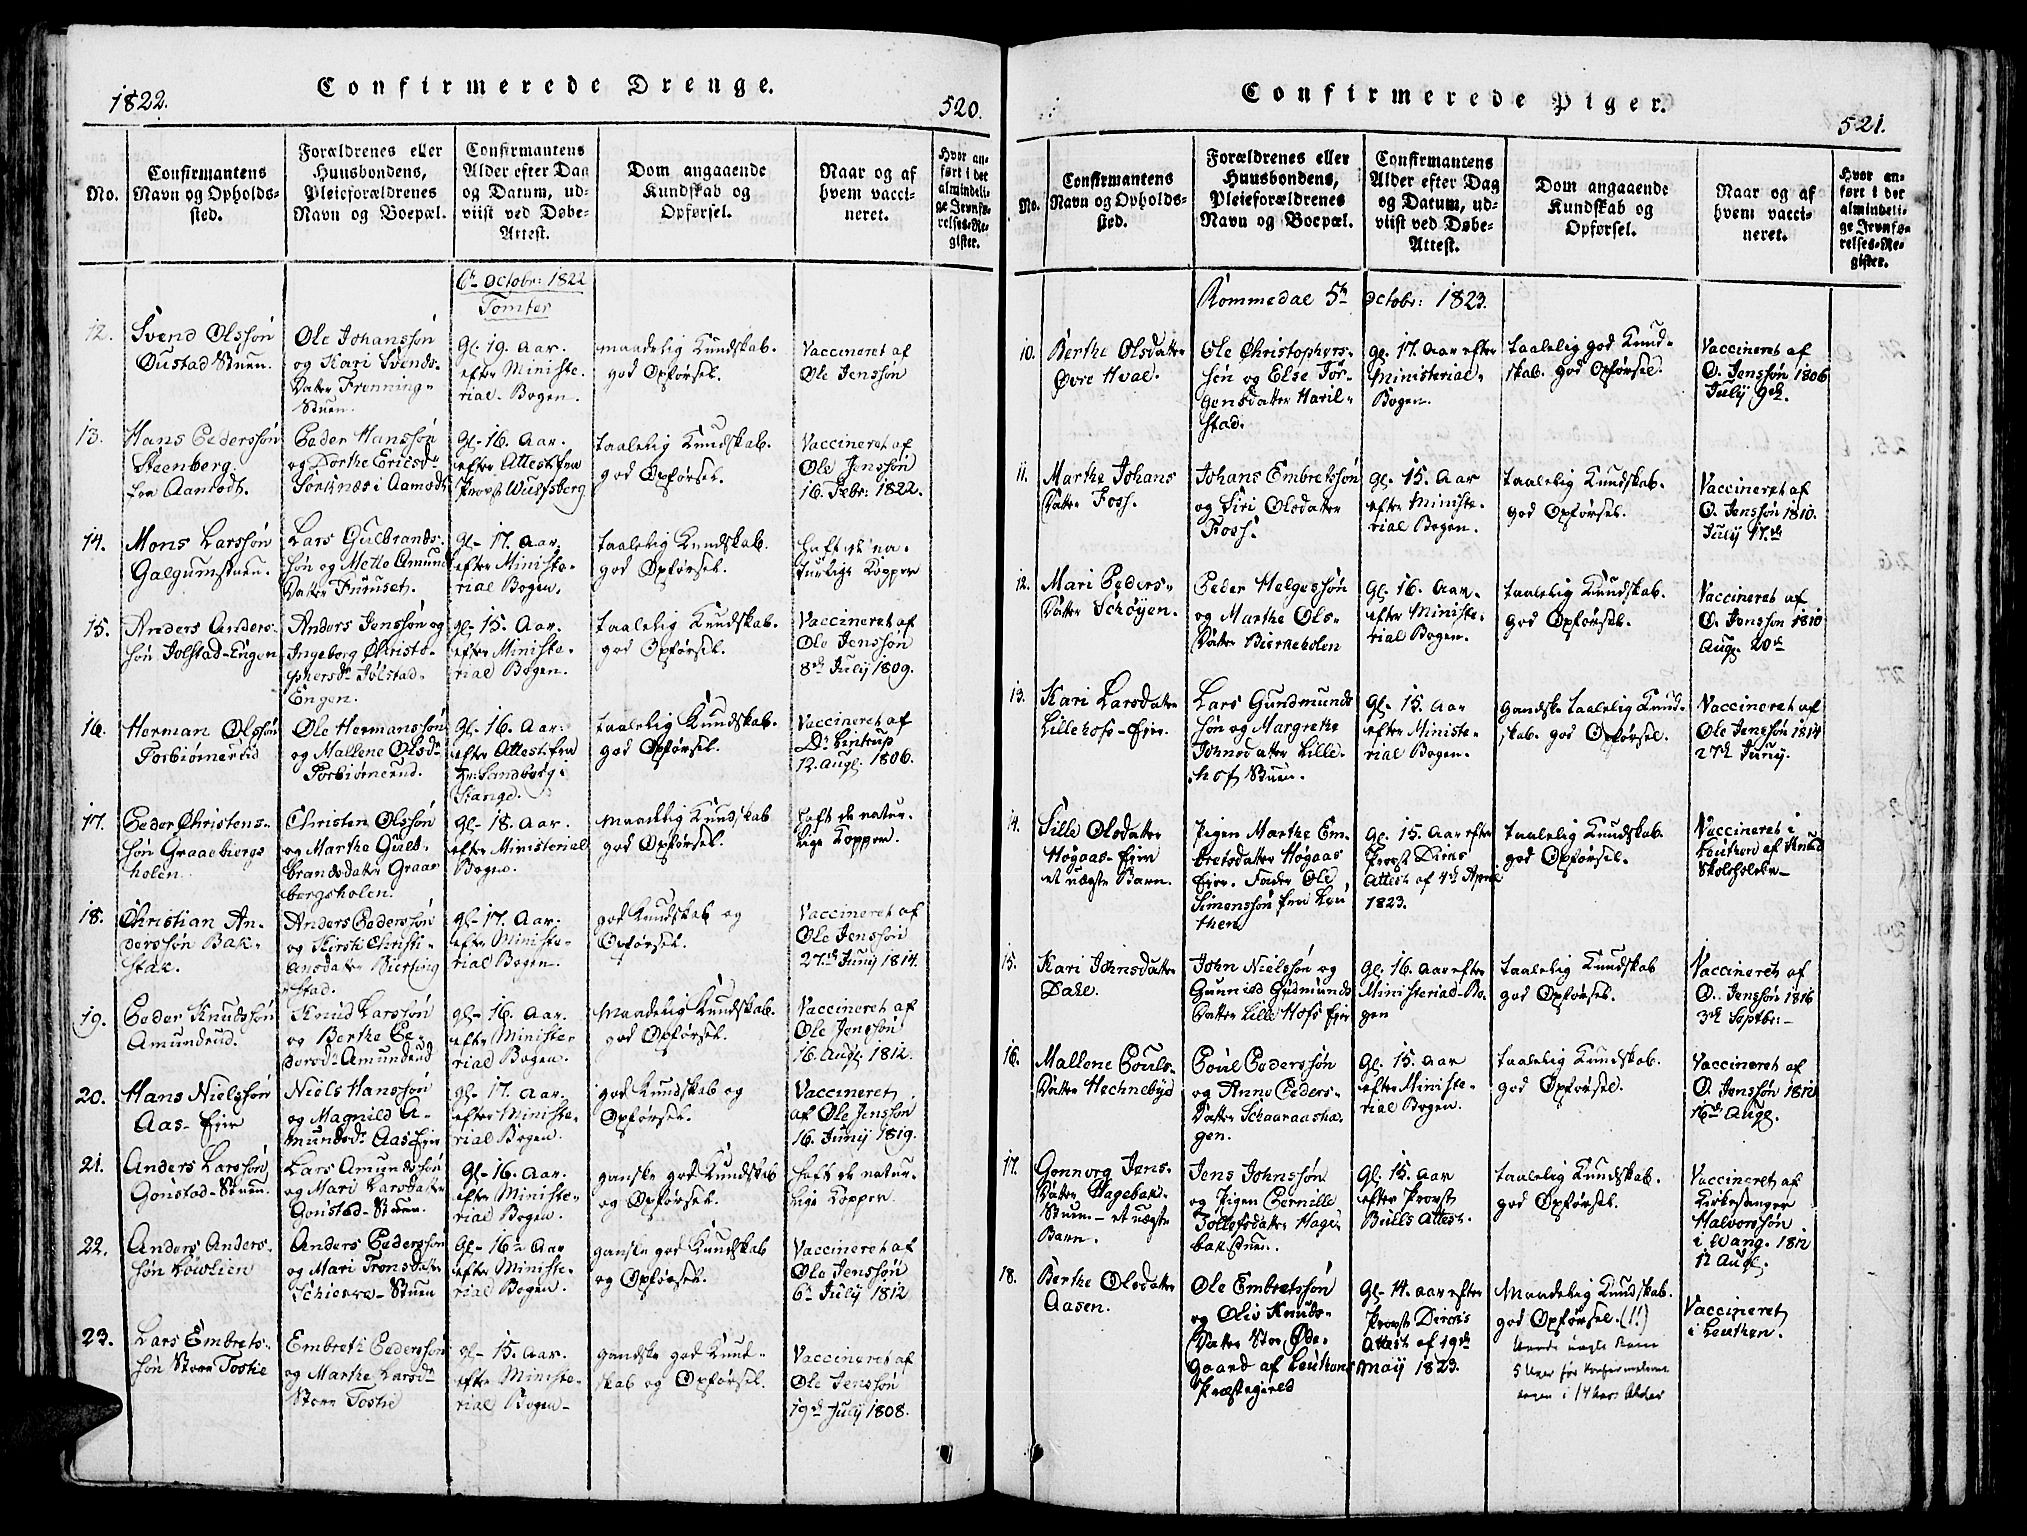 1822.
Confirmerede Drenge.
520.
No.
Confirmantens
Navn og Opholds-
sted.
Forældrenes eller
Huusbondens,
Pleieforældrenes
Navn og Boepæl.
Confirmantens
Alder efter Dag
og Datum, ud-
viist ved Døbe-
Attest.
Dom angaaende
Kundskab og
Opførsel.
Naar og af
hvem vacci-
neret.
Hvor an-
ført i det
almindeli-
ge Jevnfø-
relses-Re-
gister.
6te Octobr: 1822
Tomter
12.
Svend Olssøn
Oustad Stuen.
Ole Johanssøn
og Kari Svends-
Datter Frenning-
Stuen.
Gl. 19. Aar.
efter Ministe-
rial-Bogen.
maadelig Kundskab.
god Opførsel.
Vaccineret af
Ole Jenssøn
13.
Hans Pederssøn
Steenberg.
fra Aamodt.
Peder Hanssøn
og Dorthe Ericsdr
Sørknæs i Aamodt
Gl. 16. Aar.
efter Attest fra
Provst Wulfsberg
taalelig Kundskab.
god Opførsel.
Vaccineret af
Ole Jenssøn
16. Febr: 1822.
14.
Mons Larssøn
Galgumstuen.
Lars Gulbrands-
søn og Mette Amund
Datter Furuset.
Gl. 17. Aar.
efter Ministe-
rial Bogen.
taalelig Kundskab.
god Opførsel.
haft de na-
turlige Kopper
15.
Anders Anders-
søn Jolstad-Engen
Anders Jenssøn og
Ingeborg Christo-
phersdr Jolstad-
Engen.
Gl. 15. Aar.
efter Ministe-
rial Bogen.
taalelig Kundskab.
god Opførsel.
Vaccineret af
Ole Jenssøn
8de July 1809.
16.
Herman Olssøn
Torbiørnerud
Ole Hermanssøn
og Mallene Olsdr
Torbiørnerud.
Gl. 16. Aar.
efter Attest fra
Hr. Sandborg i
Stange.
taalelig Kundskab.
god Opførsel.
Vaccineret af
Dr. Lintrup
12. Augl. 1806.
17.
Peder Christens-
søn Graaebergs
holen.
Christen Olssøn
og Marthe Gulb-
brandsdatter Graae
bergsholen.
Gl. 18. Aar.
efter Ministerial
Bogen.
Maadelig Kundskab
god Opførsel.
haft de natur-
lige Kopper.
18.
Christian An-
derssøn Bak-
stak.
Anders Pederssøn
og Kirsti Christi-
ansdatter Biersing
stad.
Gl. 17. Aar.
efter Ministe-
rial Bogen.
god Kundskab og
Opførsel.
Vaccineret af
Ole Jenssøn
27de Juny 1814.
19.
Peder Knudssøn
Amundrud.
Knud Larssøn
og Berthe Pe-
dersdr Amundrud
Gl. 16. Aar.
efter Ministe-
rial Bogen.
Maadelig Kundskab.
god Opførsel.
Vaccineret af
Ole Jenssøn
16. Augl. 1812.
20.
Hans Nielssøn
Aas-Eier
Niels Hanssøn
og Magnild A-
mundsdr Aas Eier
Gl. 17. Aar.
efter Ministe-
rial Bogen.
god Kundskab og
Opførsel.
Vaccineret
af Ole Jenssøn
16. Juny 1819.
21.
Anders Larssøn
Gonstad-Stuen.
Lars Amundssøn
og Mari Larsdatter
Gonstad-Stuen.
Gl. 16. Aar.
efter Ministe-
rial Bogen.
ganske god Kundskab
og Opførsel.
haft de natur-
lige Kopper.
22.
Anders Anders-
søn Lowlien
Anders Pederssøn
og Mari Tronsdatter
Schierre-Stuen
Gl. 16de Aar
efter Ministe-
rial Bogen.
ganske god Kundskab
og Opførsel.
Vaccineret af
Ole Jenssøn
6te July 1812
23.
Lars Embrets-
søn Store Tostie
Embret Pederssøn
og Marthe Larsdr
Store Tostie
Gl. 15. Aar.
efter Ministe-
rial Bogen.
gandske god Kund-
skab og Opførsel.
Vaccineret af
Ole Jenssøn
19de July 1808.
Confirmerede Piger.
521.
No.
Confirmantens
Navn og Opholds-
sted.
Forældrenes eller
Huusbondens,
Pleieforældrenes
Navn og Boepæl.
Confirmantens
Alder efter Dag
og Datum, ud-
viist ved Døbe-
Attest.
Dom angaaende
Kundskab og
Opførsel.
Naar og af
hvem vacci-
neret.
Hvor an-
ført i det
almindeli-
ge Jevnfø-
relses-Re-
gister.
Rommedal 5te Octobr: 1823.
10.
Berthe Olsdatter
Øvre Hval.
Ole Christophers-
søn og Else Jør-
gensdatter Haril-
stad.
Gl. 17. Aar efter
Ministerial-
Bogen.
taalelig god Kund-
skab. god Opførsel.
Vaccineret af
O. Jenssøn 1806
July 9de.
11.
Marthe Johans
Datter Foss.
Johans Embretssøn
og Siri Olsdatter
Foss.
Gl. 15. Aar
efter Ministe-
rial Bogen.
taalelig Kundskab.
god Opførsel.
Vaccineret af
O. Jenssøn 1810.
July 17de
12.
Mari Peders-
Datter Schøyen.
Peder Helgessøn
og Marthe Ols-
Datter Bierkeholen
Gl. 16. Aar.
efter Ministe-
rial Bogen.
taalelig Kundskab.
god Opførsel.
Vaccineret af
O. Jenssøn 1810
Aug. 20de
13.
Kari Larsdatter
Lillehofs-Eier.
Lars Gundmunds
søn og Margrethe
Johnsdatter Lille-
hof Stuen.
Gl. 15. Aar
efter Ministe-
rial Bogen.
gandske taalelig Kund-
skab. god Opførsel.
Vaccineret af
Ole Jenssøn 1814
27de Juny.
14.
Sille Olsdatter
Høgaas-Eiern
et uægte Barn.
Pigen Marthe Em-
bretsdatter Høgaas
Eier. Fader Ole
Simenssøn fra Leu-
then
Gl. 15. Aar efter
Provst Dircs
Attest af 4de April
1823.
taalelig Kundskab.
god Opførsel.
Vaccineret i
Leuthen af Knud
Skoleholder
15.
Kari Johnsdatter
Dahl.
John Nielssøn og
Gunnild Gudmunds
Datter Lille Hofs Eier
Gl. 16. Aar efter
Ministerial-Bo-
gen
taalelig Kundskab
god Opførsel.
Vaccineret af
O. Jenssøn 1816
3de Septbr.
16.
Mallene Pouls-
Datter Hechnebye
Poul Pederssøn
og Anne Peders-
Datter Schaaraasha-
gen.
Gl. 15. Aar
efter Ministe-
rial Bogen.
taalelig Kundskab.
god Opførsel.
Vaccineret af
O. Jenssøn 1812
16de Augl.
17.
Gonnorg Jens-
Datter Hagebak-
Stuen - et uægte
Barn.
Jens Johnssøn
og Pigen Pernille
Tollefsdatter Hage
bakstuen.
Gl. 15. Aar
efter Provst
Bulls Attest.
taalelig Kundskab.
god Opførsel.
Vaccineret af
Kirkesanger
Halvorssøn
i Wang. 1812
12 Augl.
18.
Berthe Olsdatter
Aasen.
Ole Embretssøn
og Olis Knuds-
Datter Stor Øde-
Gaard af Leuthens
Præstegield
Gl. 14. Aar efter
Provst Dircs
Attest af 19de
May 1823.
Maadelig Kundskab.
god Opførsel. (!!)
5 Uger før Konfirmationen
i 14 Aars Alder
Vaccineret
i Leuthen.